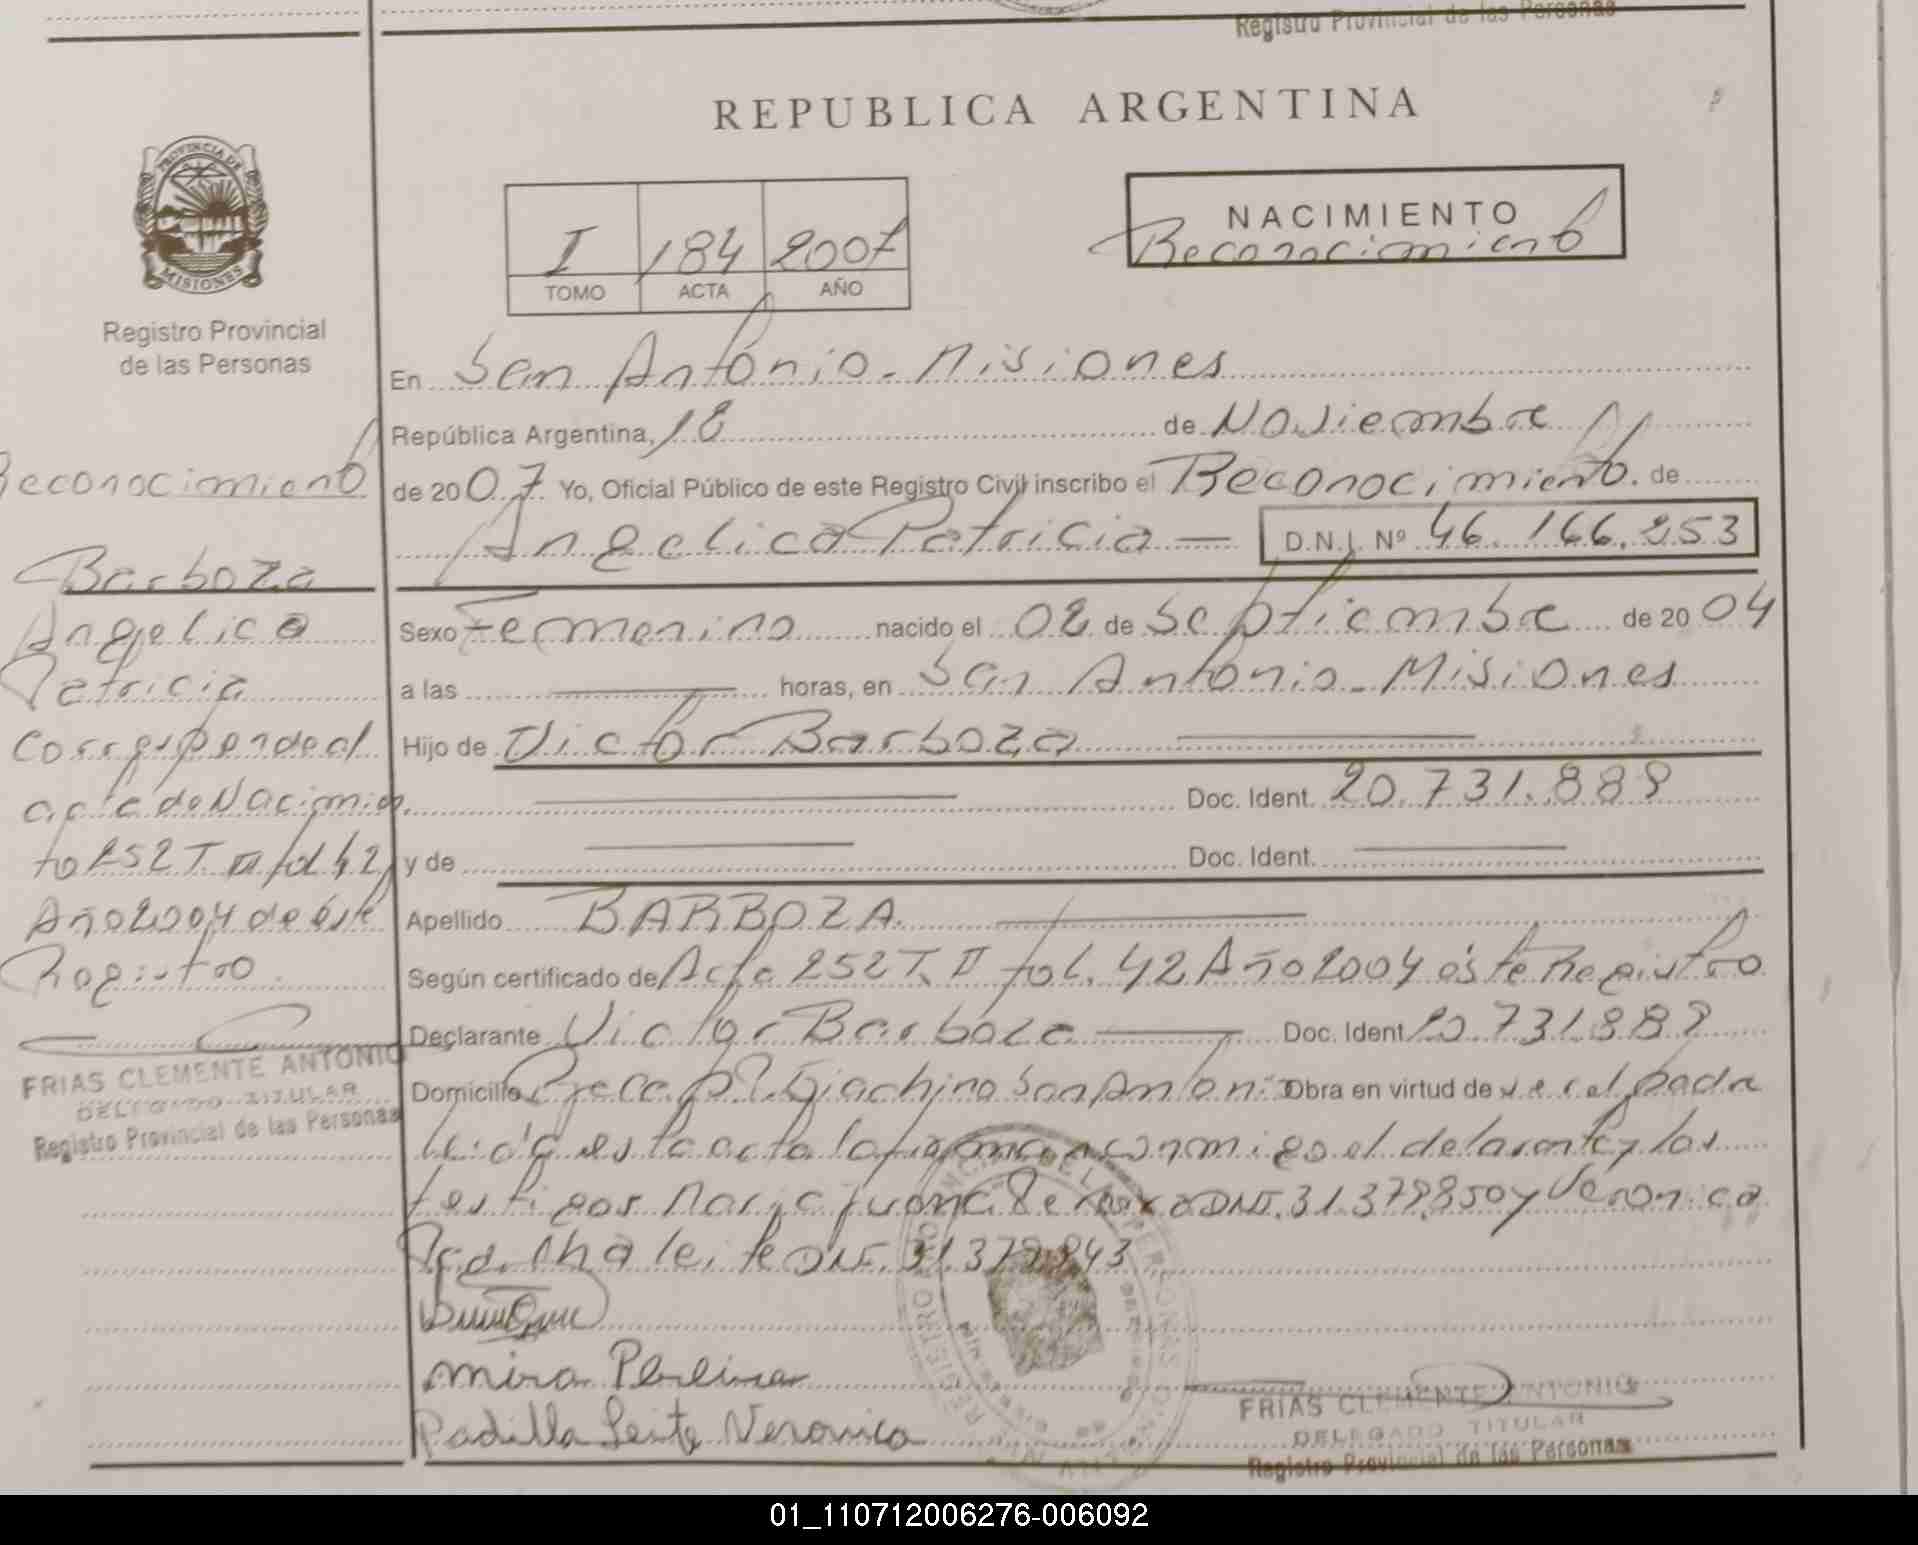 Registro Provincial de las Personas
REPUBLICA ARGENTINA
PROVINCIA DE
MISIONES
Registro Provincial
de las Personas
I 184 2007
TOMO ACTA AÑO
NACIMIENTO
Reconocimiento
En San Antonio - Misiones
República Argentina, 18 de Noviembre
de 2007 Yo, Oficial Público de este Registro Civil inscribo el Reconocimiento de
Angelica Patricia — D.N.I. Nº 46.166.253
Sexo Femenino nacido el 02 de Septiembre de 2004
a las horas, en San Antonio - Misiones
Hijo de Victor Barboza
Doc. Ident. 20.731.888
y de Doc. Ident.
Apellido BARBOZA
Según certificado de Acta 252 T. II fol. 42 Año 2004 éste Registro
Declarante Victor Barboza Doc. Ident 20.731.888
Domicilio San Antonio Obra en virtud de ser el padre
leida esta acta la firman conmigo el delarante y los
testigos Maria Juana DNI. 31.379.850 y Veronica
DNI. 31.379.843
Padilla Leite Veronica
FRIAS CLEMENTE ANTONIO
DELEGADO TITULAR
Registro Provincial de las Personas
Reconocimiento
Barboza
Angelica
Patricia
Corresponde al
acta de Nacimien
to 252 T. II fol 42
Año 2004 de éste
Registro.
FRIAS CLEMENTE ANTONIO
DELEGADO TITULAR
Registro Provincial de las Personas
01_110712006276-006092